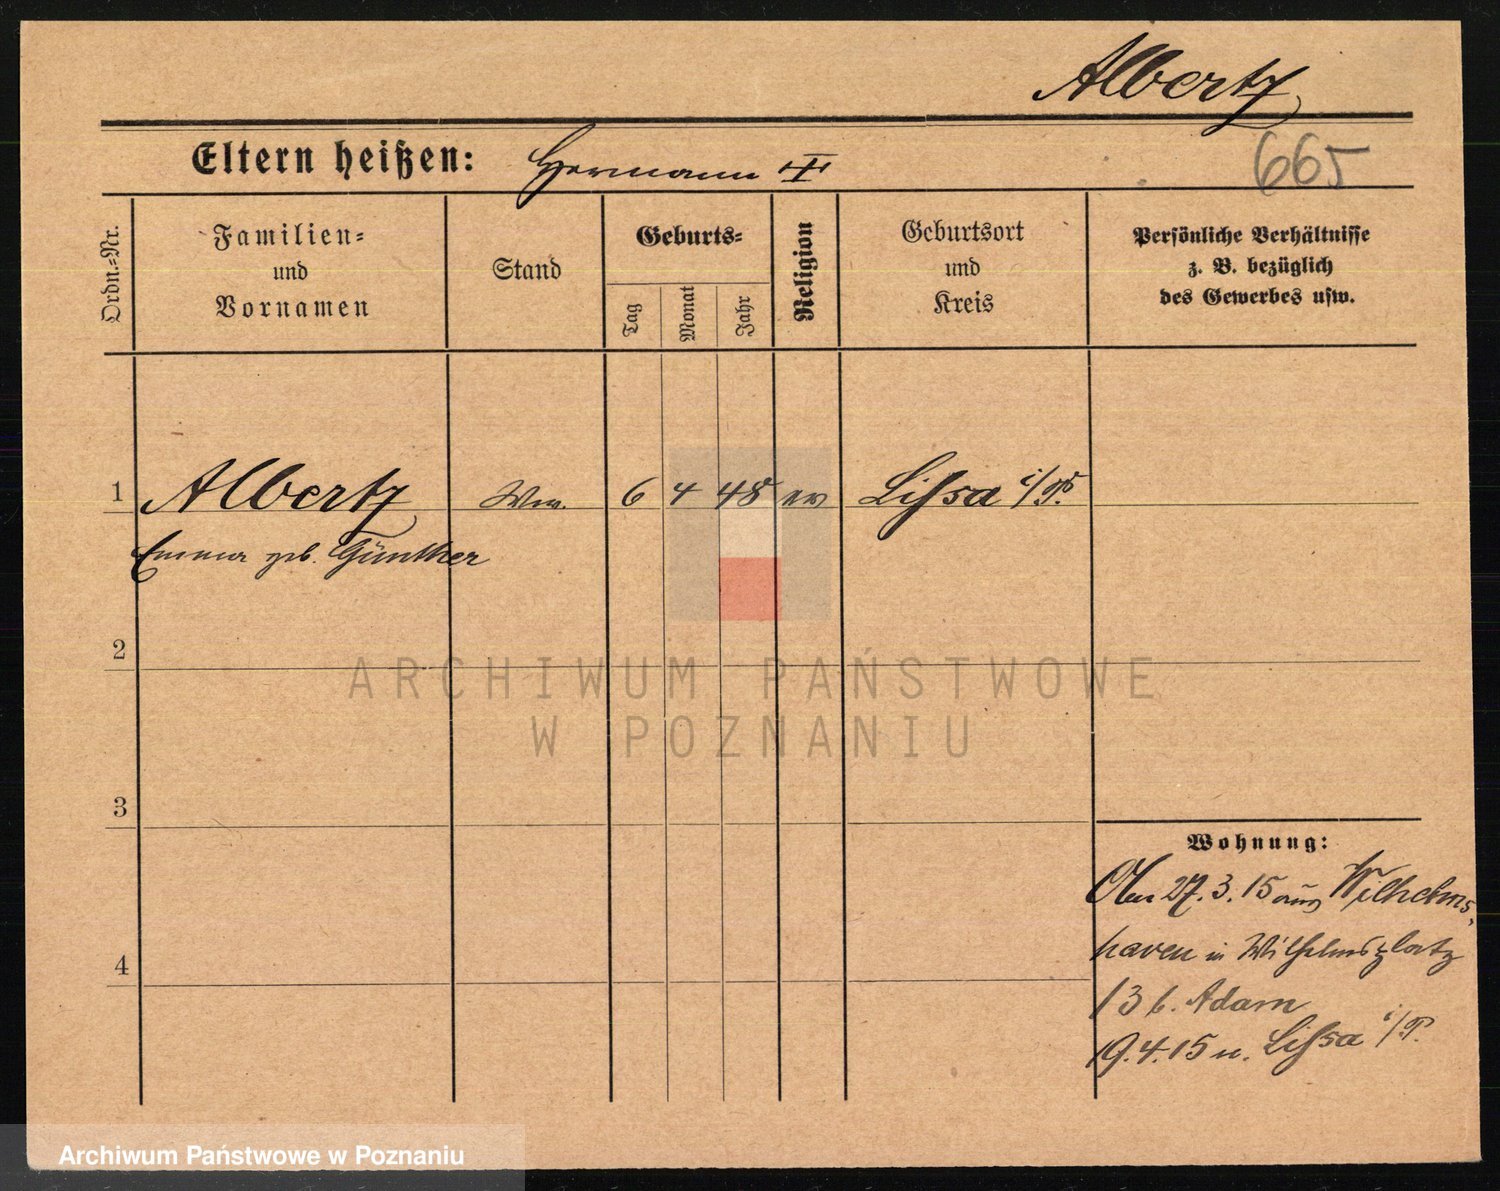 Albertz
Eltern heißen: Hermann
665
Ordn.-Nr.
Familien-
und
Vornamen
Stand
Geburts-
Tag
Monat
Jahr
Religion
Geburtsort
und
Kreis
Persönliche Verhältnisse
z. B. bezüglich
des Gewerbes usw.
1 Albertz Ww. 6 4 48 ev Lissa i/P.
Emma geb. Günther
2
3
4
Wohnung:
27.3.15 aus Wilhelms-
haven in Wilhelmsplatz
13 b. Adam
19.4.15 n. Lissa i/P.
ARCHIWUM PAŃSTWOWE
W POZNANIU
Archiwum Państwowe w Poznaniu